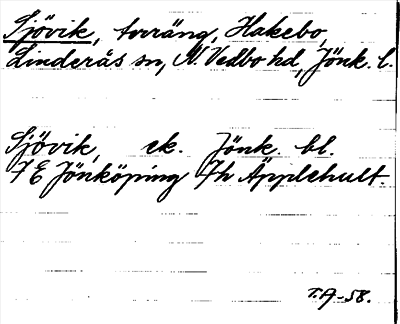 Sjövik, torräng, Hakebo,
Linderås sn, N. Vedbo hd, Jönk. l.
Sjövik, ek. Jönk. bl.
7E Jönköping 7h Äpplehult.
T.A-58.